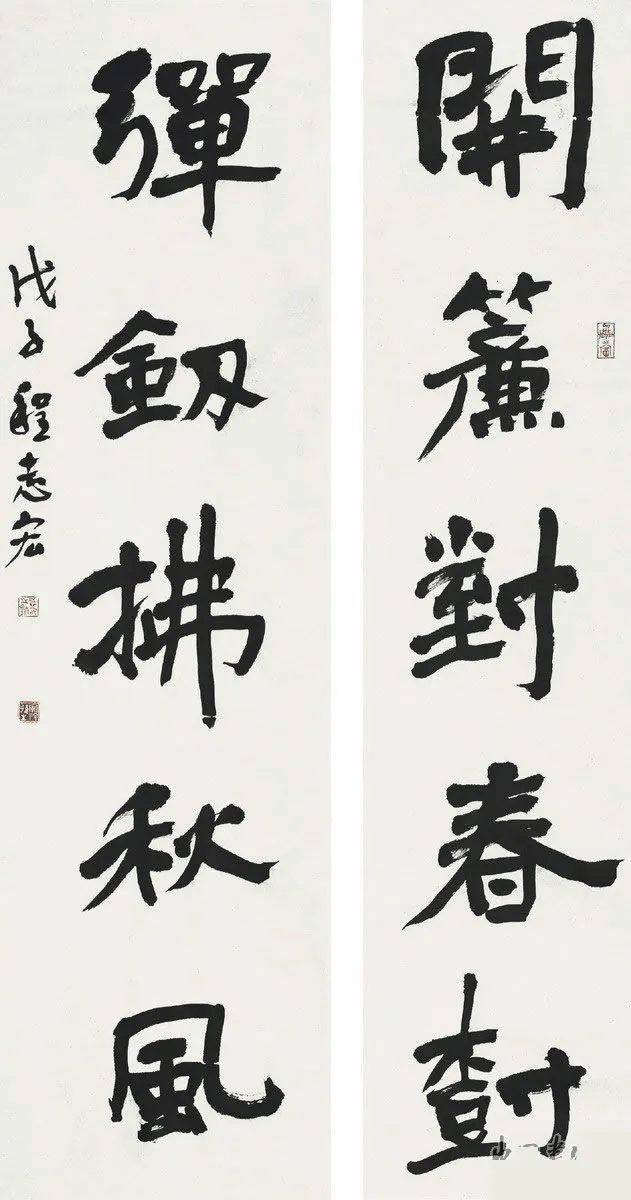 開簾對春樹
彈釼拂秋風
戊子程志宏